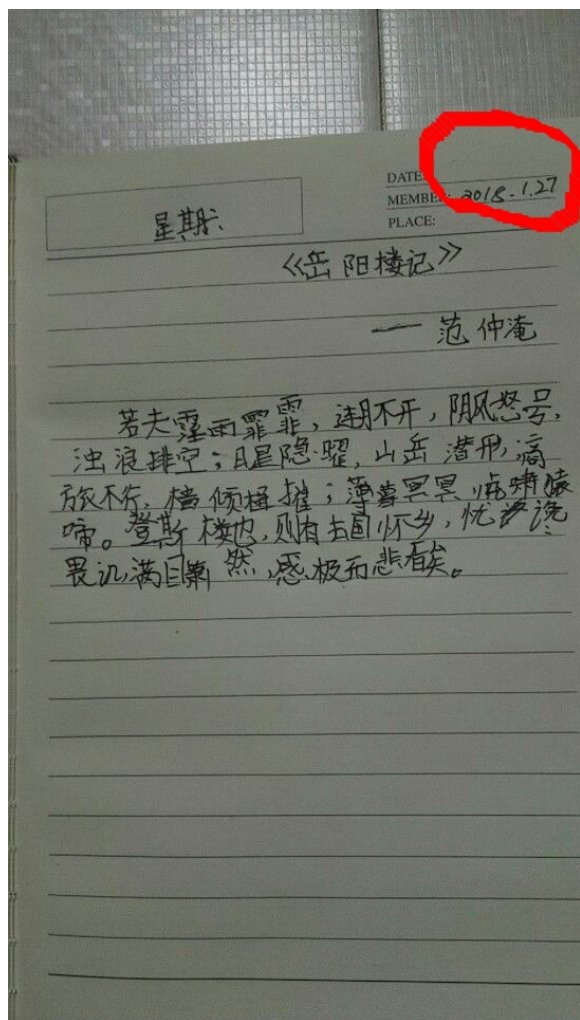 DATE:
MEMBER: 2018.1.27
PLACE:
星期六
《岳阳楼记》
— 范仲淹
若夫霪雨霏霏，连月不开，阴风怒号，
浊浪排空；日星隐曜，山岳潜形，商
旅不行，樯倾楫摧；薄暮冥冥，虎啸猿
啼。登斯楼也，则有去国怀乡，忧谗
畏讥，满目萧然，感极而悲者矣。